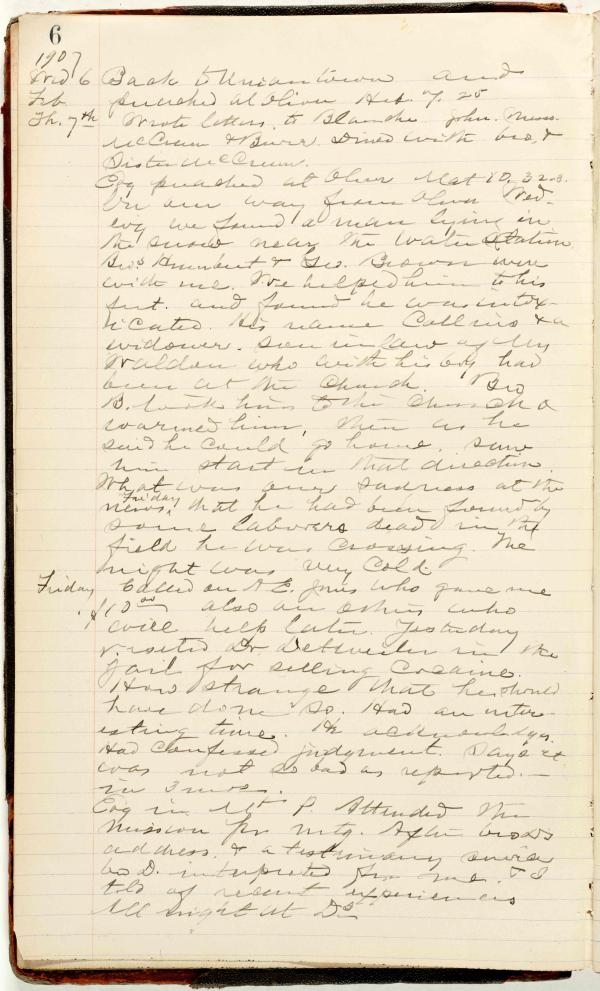 6
1907
Wed 6 Back to Uniontown and
Feb preached at Oliver Heb. 7. 25
Th. 7th Wrote letters to Blanche John. Messrs.
McCrum & Burr. Dined with bro. &
Sister McCrum.
Evg preached at Oliver Mat 10, 32-3.
On our way from Oliver Wed-
evg we found a man lying in
the snow near the water station
Bros Humbert & Geo. Brown were
with me. We helped him to his
feet. and found he was intox-
icated. His name Collins & a
widower. Son in law of My
Waldon who with his boy had
been at the Church. Bro
B. took him to the Church &
warmed him, then as he
said he could go home. saw
him start in that direction.
What was our sadness at the
news, Friday that he had been found by
some laborers dead in the
field he was crossing. The
night was very cold
Friday Called on A. E. Jones who gave me
$10.00 also on others who
will help later. Yesterday
visited Dr. Detweiler in the
Jail for selling Cocaine.
How strange that he should
have done so. Had an inter-
esting time. He acknowledges.
Had confessed judgment. Says it
was not so bad as reported.—
in 3 mos.
Evg in Mt P. Attended the
mission for mtg. After bro D's
address. & a testimony service
bro D. interpreted for me. & I
told of recent experiences
All night at D's